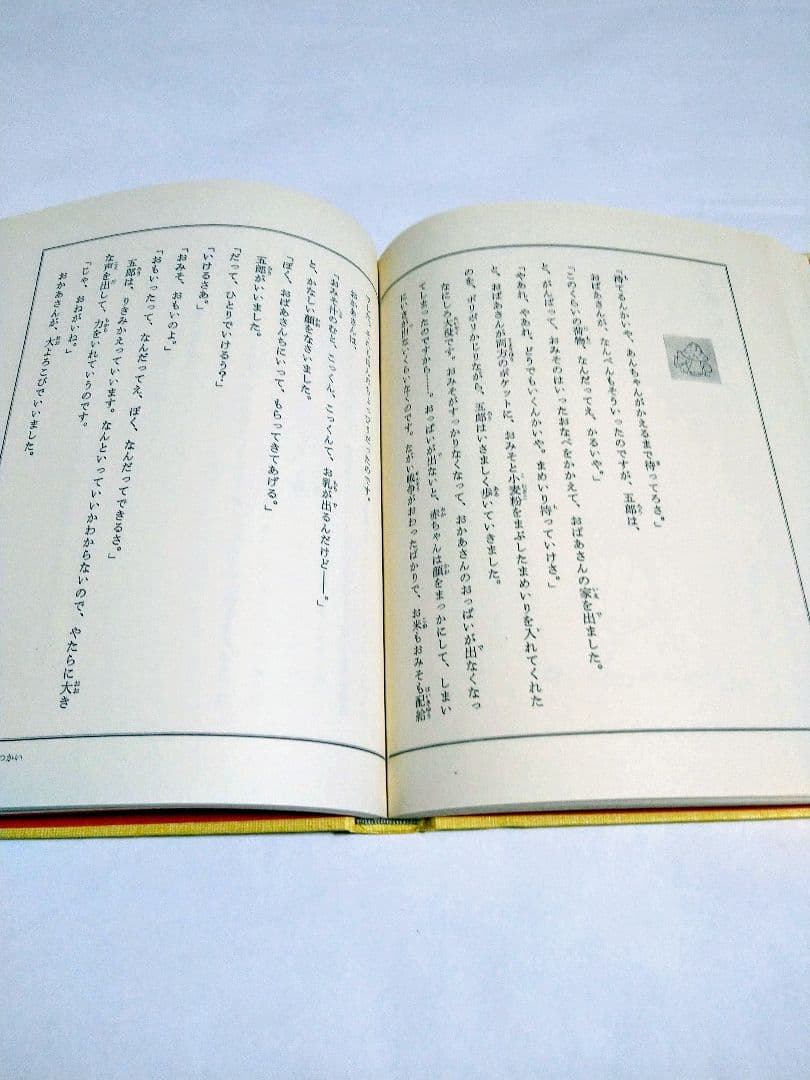 「待てるんかいや、あんちゃんがかえるまで待ってろさ。」
おばあさんが、なんべんもそういったのですが、五郎は、
「このくらいの荷物、なんだってえ、かるいや。」
と、がんばって、おみそのはいったおなべをかかえて、おばあさんの家を出ました。
「やあれ、やあれ、どうでもいくんかいや。まめいり持っていけさ。」
と、おばあさんが両方のポケットに、おみそと小麦粉をまぶしたまめいりを入れてくれた
のを、ポリポリかじりながら、五郎はいさましく歩いていきました。
なにしろ大役です。おみそがすっかりなくなって、おかあさんのおっぱいが出なくなっ
てしまったのですから――。おっぱいが出ないと、赤ちゃんは顔をまっかにして、しまい
にいきがでないくらいなくのです。ながい戦争がおわったばかりで、お米もおみそも配給
おかあさんは、
「おみそ汁のむと、こっくん、こっくんて、お乳が出るんだけど――。」
と、かなしい顔をなさいました。
「ぼく、おばあさんちにいって、もらってきてあげる。」
五郎がいいました。
「だって、ひとりでいけるう？」
「いけるさあ。」
「おみそ、おもいのよ。」
「おもいったって、なんだってえ、ぼく、なんだってできるさ。」
五郎は、りきみかえっています。なんといっていいかわからないので、やたらに大き
な声を出して、力をいれていうのです。
「じゃ、おねがいね。」
おかあさんが、大よろこびでいいました。
つかい